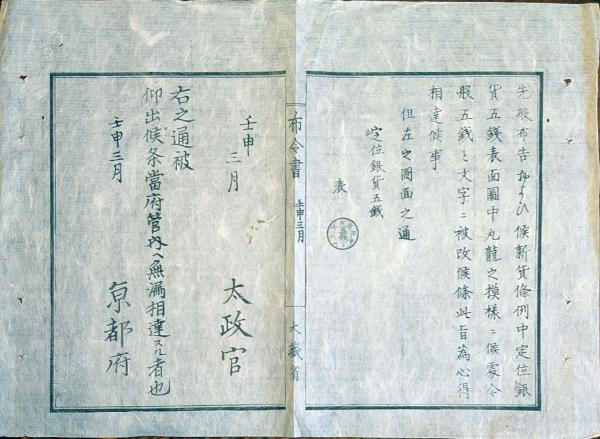 先般布告および候新貨條例中定位銀
貨五錢表面圖中丸龍之摸樣ニ候處今
般五錢ト文字ニ被改候條此旨為心得
相達候事
但左之圖面之通
定位銀貨五錢
表
布令書
壬申三月
大藏省
壬申
三月
太政官
右之通被
仰出候条當府管内ヘ無漏相達スル者也
壬申三月
京都府